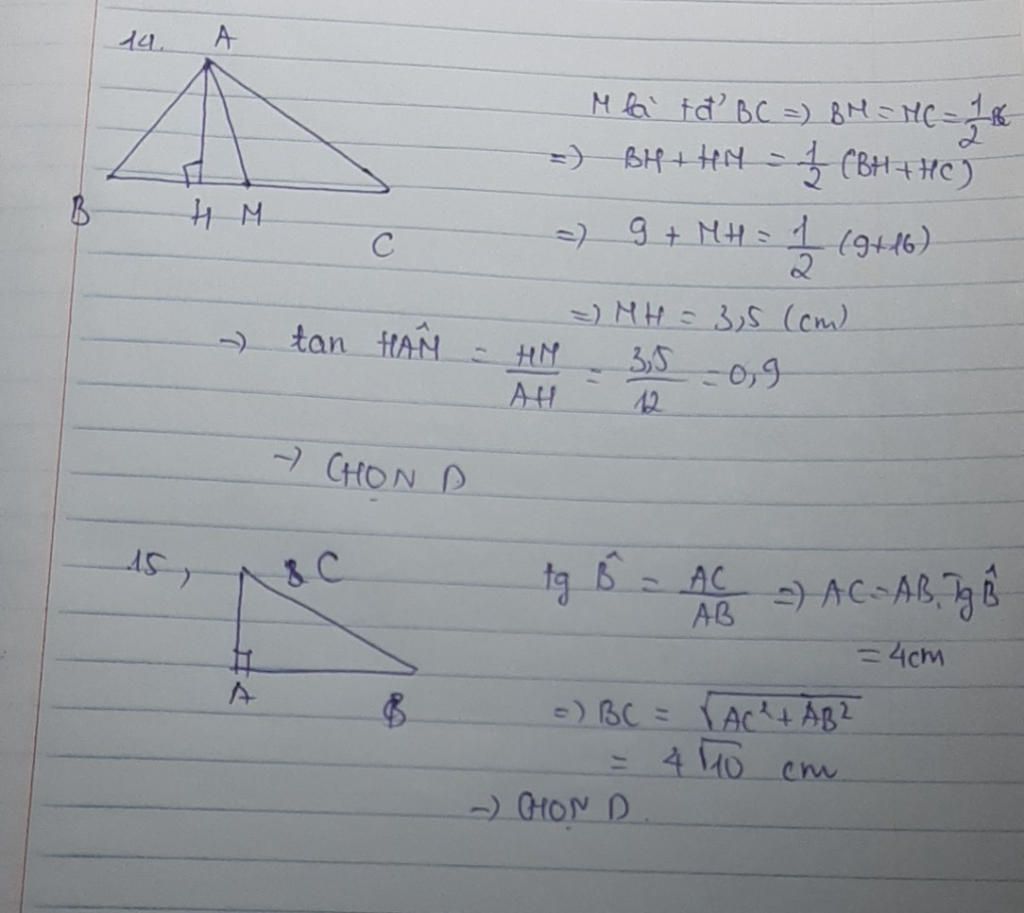 14.
A
B
H M
C
M là tđ' BC => BM = MC = 1/2 BC
=> BH + HM = 1/2 (BH + HC)
=> 9 + MH = 1/2 (9+16)
=> MH = 3,5 (cm)
→ tan HÂM = HM/AH = 3,5/12 = 0,9
→ CHỌN D
15,
C
A
B
tg B̂ = AC/AB => AC = AB. Tg B̂
= 4cm
=> BC = √(AC² + AB²)
= 4√10 cm
→ CHỌN D.